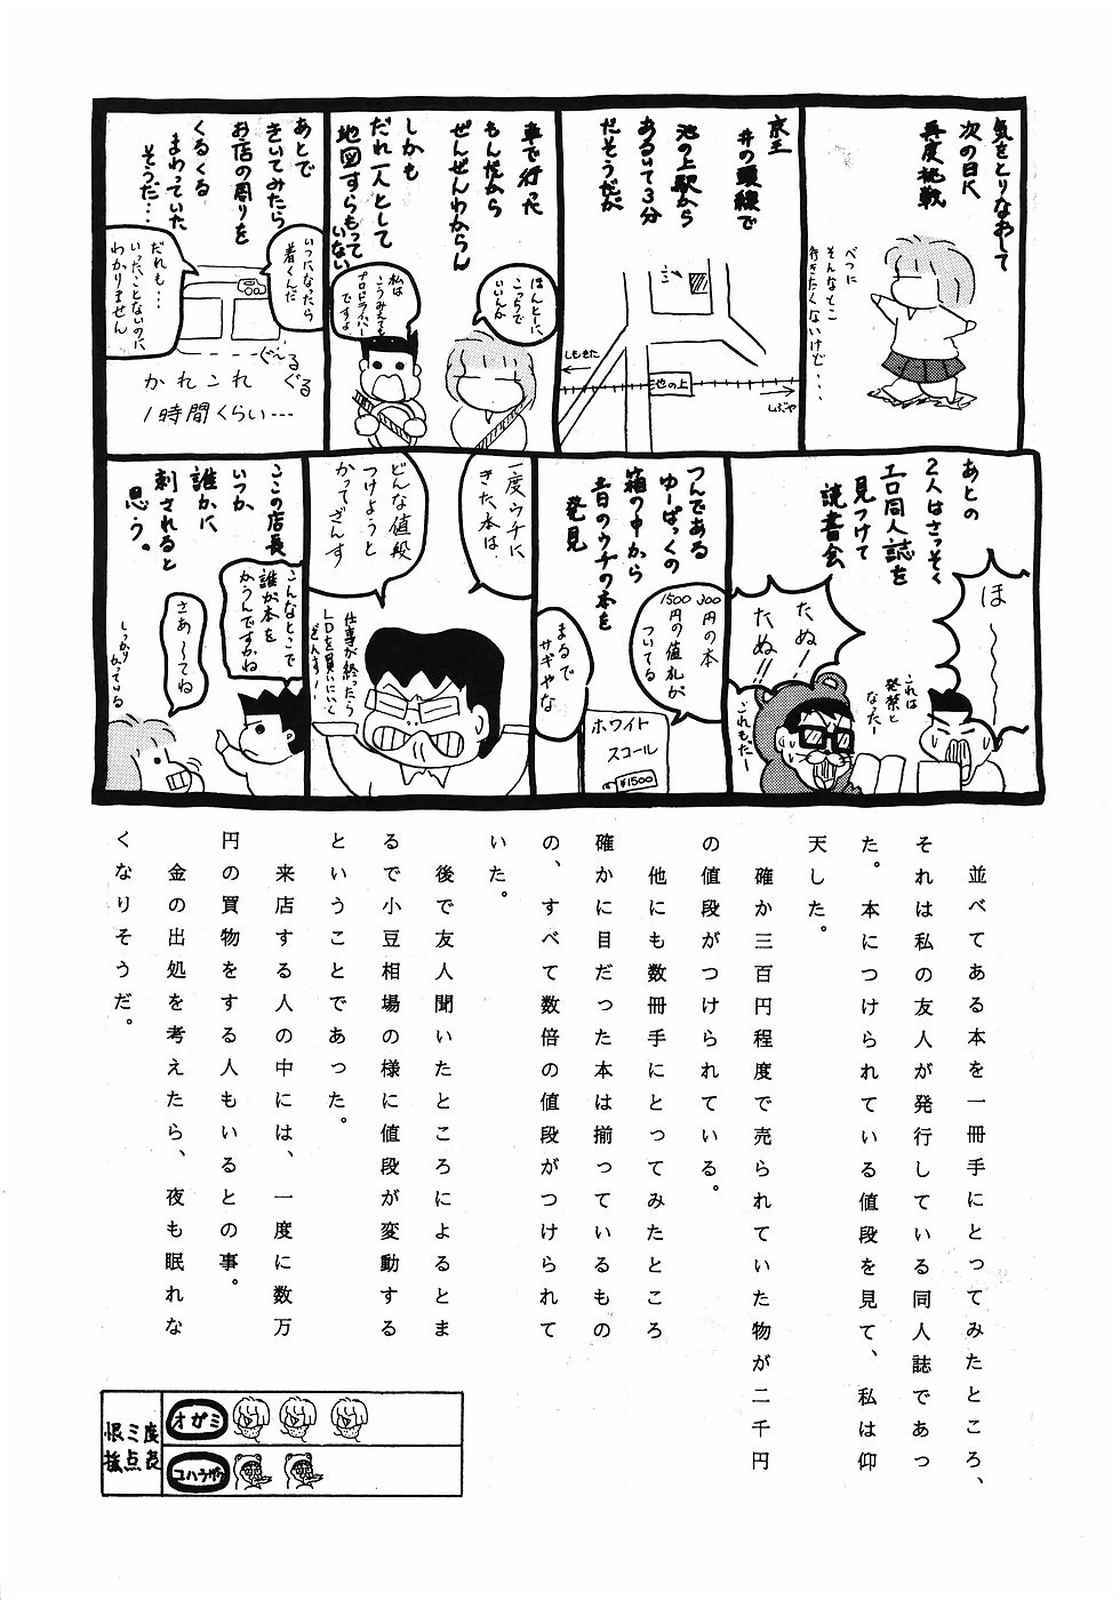 気をとりなおして
次の日に
再度挑戦
べつに
そんなとこ
行きたくないけど・・・
京王
井の頭線で
池の上駅から
あるいて3分
だそうだが
しもきた
池の上
しぶや
車で行った
もんだから
ぜんぜんわからん
しかも
だれ一人として
地図すらもって
いない
ほんとーに
こっちで
いいんか
私は
こうみえても
プロドライバー
ですよ
あとで
きいてみたら
お店の周りを
くるくる
まわっていた
そうだ・・・
いつになったら
着くんだ
だれも・・・
いったことないのに
わかりません
ぐ〜るぐる
かれこれ
1時間くらい・・・
あとの
2人はさっそく
エロ同人誌を
見つけて
読書会
ほ〜
これは
発禁と
なったー
たぬー!!
たぬ!!
これもだー
つんである
ゆーぱっくの
箱の中から
昔のウチの本を
発見
300円の本
1500円の値札が
ついてる
まるで
サギやな
ホワイト
スコール
¥1500
一度ウチに
きた本は、
どんな値段
つけようと
かってざんす
仕事が終ったら
LDを買いにいく
ざんす!
ここの店長
いつか
誰かに
刺されると
思う。
こんなとこで
誰が本を
かうんですかね
さあ〜てね
しっかり
かっている
並べてある本を一冊手にとってみたところ、
それは私の友人が発行している同人誌であっ
た。本につけられている値段を見て、私は仰
天した。
確か三百円程度で売られていた物が二千円
の値段がつけられている。
他にも数冊手にとってみたところ
確かに目だった本は揃っているもの
の、すべて数倍の値段がつけられて
いた。
後で友人聞いたところによるとま
るで小豆相場の様に値段が変動する
ということであった。
来店する人の中には、一度に数万
円の買物をする人もいるとの事。
金の出処を考えたら、夜も眠れな
くなりそうだ。
オガミ